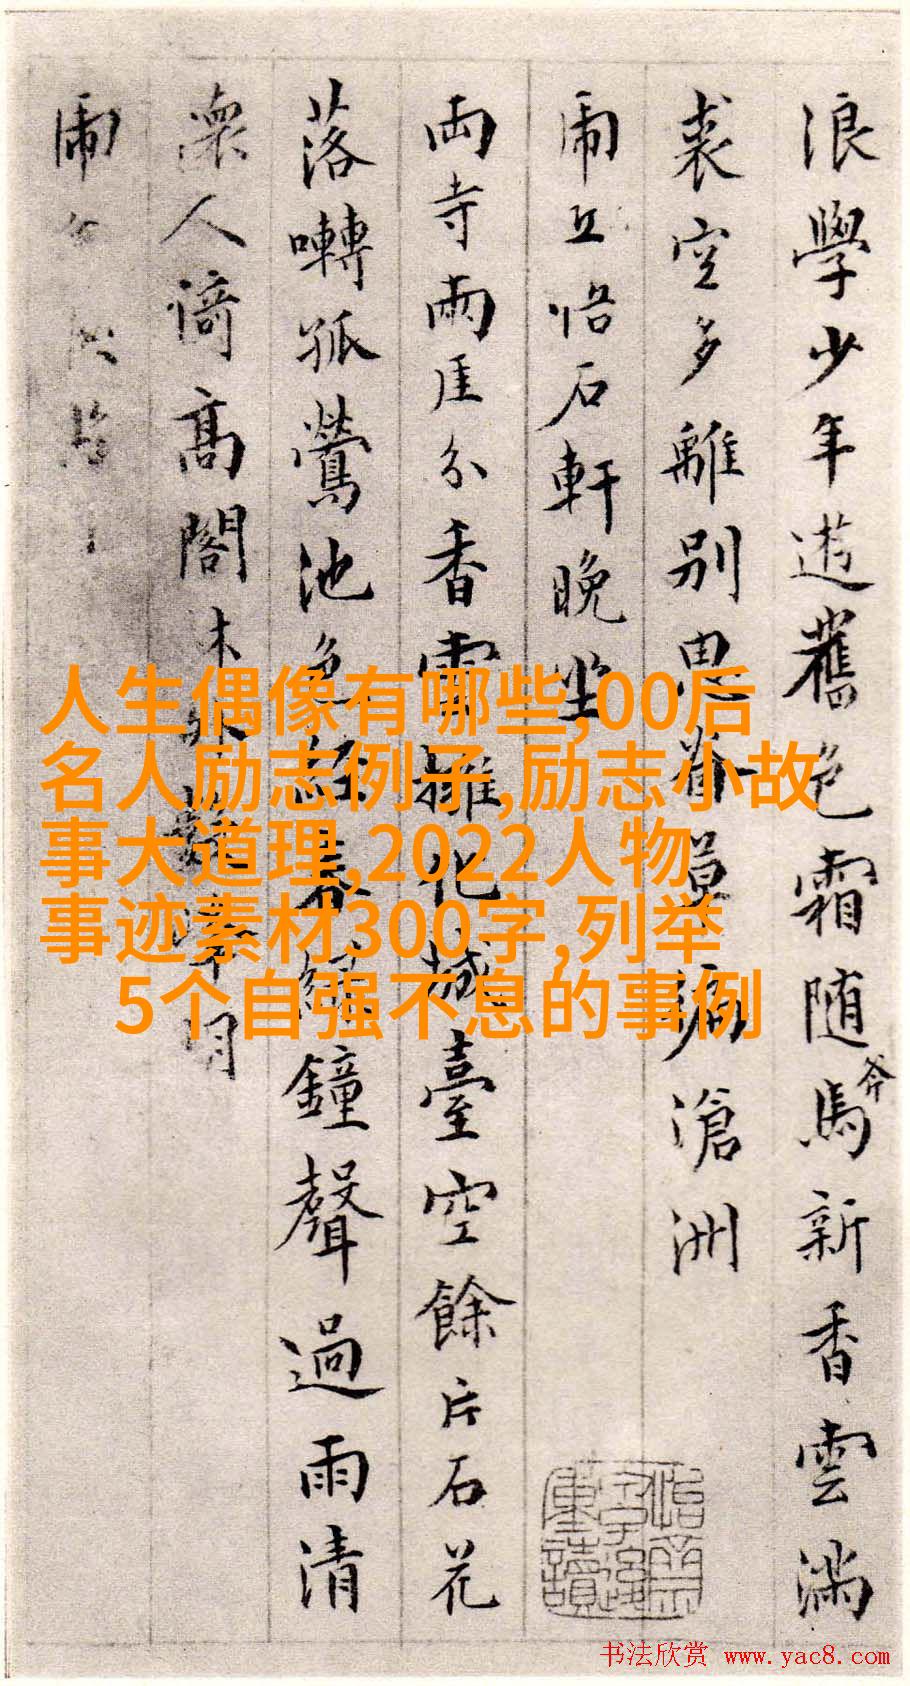 浪學少年遊舊色霜随馬新香雲滿
裘空多離別思滄洲
丘悟石軒晚坐
兩寺兩厓分香雲擁化城臺空餘片石花
落囀孤鶯池色經春綠鐘聲過雨清
人高閣
人生偶像有哪些,00后
名人励志例子,励志小故
事大道理,2022人物
事迹素材300字,列举
5个自强不息的事例
书法欣赏 www.yac8.com